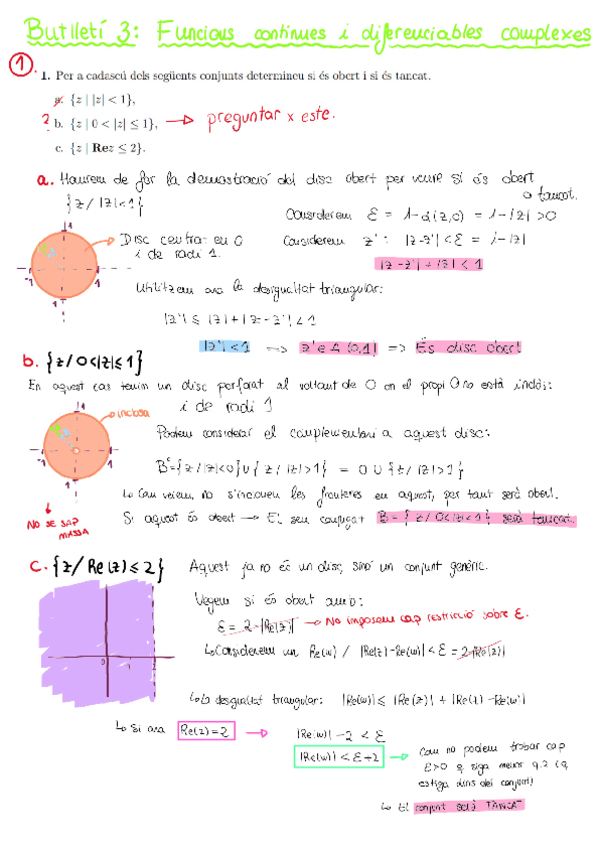 Butlletí 3: Funcions contínues i diferenciables complexes
1.
1. Per a cadascú dels següents conjunts determineu si és obert i si és tancat.
a. {z | |z| < 1},
? b. {z | 0 < |z| ≤ 1}, → preguntar x este.
c. {z | Rez ≤ 2}.
a. Haurem de fer la demostració del disc obert per veure si és obert
o tancat.
{z/ |z|<1}
Considerem ε = 1-d(z,0) = 1-|z| >0
Disc centrat en 0
i de radi 1.
Considerem z': |z-z'| < ε = 1-|z|
|z-z'|+|z| < 1
Utilitzem ara la desigualtat triangular:
|z'| ≤ |z|+|z-z'| < 1
|z'| < 1 => z' ∈ Δ(0,1) => És disc obert
b. {z/ 0<|z|≤1}
En aquest cas tenim un disc perforat al voltant de 0 on el propi 0 no està inclòs:
i de radi 1
inclosa
Podem considerar el complementari a aquest disc:
B^c={z/|z|<0}∪{z/|z|>1} = 0 ∪ {z/|z|>1}
Com veiem, no s'inclouen les fronteres en aquest, per tant serà obert.
NO SE SAP
MASSA
Si aquest és obert → El seu conjugat B={z/0<|z|<1} serà tancat.
c. {z/ Re(z) ≤ 2}
Aquest ja no és un disc, sinó un conjunt genèric.
Vegem si és obert amb:
ε = 2-|Re(z)| → No imposem cap restricció sobre ε.
Considerem un Re(w) / |Re(z)-Re(w)| < ε = 2-|Re(z)|
La desigualtat triangular: |Re(w)| ≤ |Re(z)| + |Re(z)-Re(w)|
Si ara Re(z)=2 → |Re(w)| -2 < ε
|Re(w)| < ε+2 → Com no podem trobar cap
ε>0 q siga menys q 2 (q
estiga dins del conjunt)
El conjunt serà TANCAT